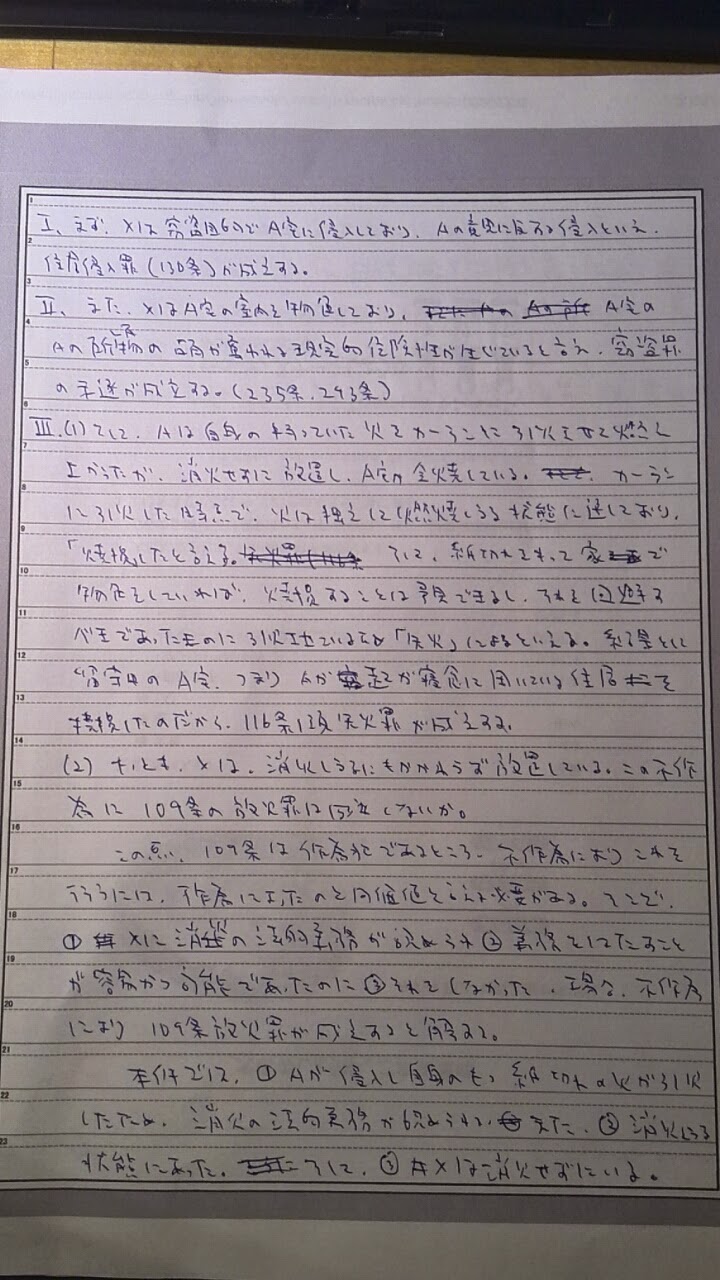 Ⅰ、まず、Xは窃盗目的でA宅に侵入しており、Aの意思に反する侵入といえ、
住居侵入罪(130条)が成立する。
Ⅱ、また、XはA宅の室内を物色しており、A宅の
Aの所有物の占有が奪われる現実的危険性が生じていると言え、窃盗罪
の未遂が成立する。(235条、243条)
Ⅲ、(1)そして、Aは自身の持っていた火をカーテンに引火させて燃え
上がったが、消火せずに放置し、A宅が全焼している。カーテン
に引火した時点で、火は独立して燃焼しうる状態に達しており、
「焼損」したと言える。そして、紙切れをもって家で
物色をしていれば、焼損することは予見できるし、それを回避す
べきであったものに引火しているから「失火」によるといえる。結果として
留守中のA宅、つまりAが起が寝食に用いている住居を
焼損したのだから、116条1項失火罪が成立する。
(2)もっとも、Xは、消火しうるにもかかわらず放置している。この不作
為に109条の放火罪は成立しないか。
この点、109条は作為犯であるところ、不作為によりこれを
行うには、作為によったのと同価値と言える必要がある。そこで、
①Xに消火の法的義務が認められ②義務をはたすこと
が容易かつ可能であったのに③それをしなかった、場合、不作為
により109条放火罪が成立すると解する。
本件では、①Aが侵入し自身のもつ紙切れの火が引火
したため、消火の法的義務が認められる、また、②消火しうる
状態にあった。そして、③Xは消火せずにいる。